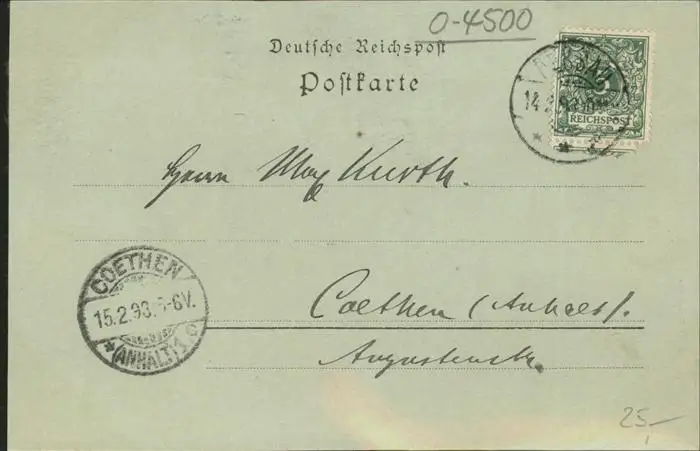 0-4500
Deutsche Reichspost
Postkarte
5
REICHSPOST
14.2.
Herrn Max Kurth.
COETHEN
15.2.98. 5-6V.
* (ANHALT) 1 c
Coethen (Anhalt).
Augustenstr.
25,-